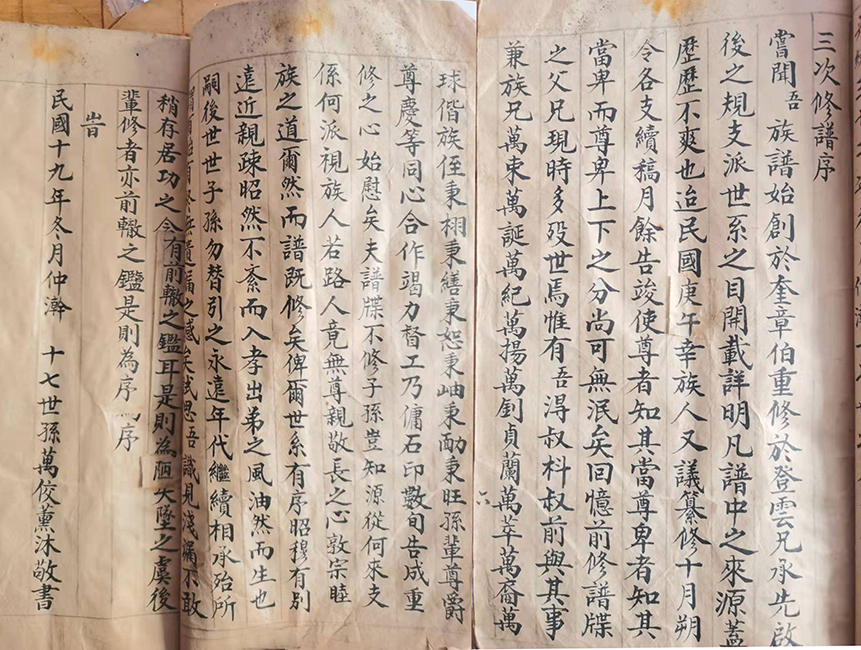 三次修譜序
嘗聞吾族譜始創於奎章伯重修於登雲兄承先啟
後之規支派世系之目開載詳明凡譜中之來源蓋
歷歷不爽也迨民國庚午幸族人又議纂修十月朔
令各支續稿月餘告竣使尊者知其當尊卑者知其
當卑而尊卑上下之分尚可無泯矣回憶前修譜牒
之父兄現時多歿世焉惟有吾淂叔科叔前與其事
兼族兄萬東萬誕萬紀萬揚萬釗貞蘭萬萃萬裔萬
六
球偕族侄秉栩秉繕秉恕秉岫秉勔秉旺孫輩尊爵
尊慶等同心合作竭力督工乃傭石印數旬告成重
修之心始慰矣夫譜牒不修子孫豈知源從何來支
係何派視族人若路人竟無尊親敬長之心敦宗睦
族之道爾然而譜既修矣俾爾世系有序昭穆有別
遠近親疎昭然不紊而入孝出弟之風油然而生也
嗣後世世子孫勿替引之永遠年代繼續相承殆所
無遺漏之感矣試思吾識見淺漏不敢
稍存居功之念有前轍之鑑耳是則為失墜之虞後
輩修者亦前轍之鑑是則為序序
旹
民國十九年冬月仲澣 十七世孫萬佼薰沐敬書